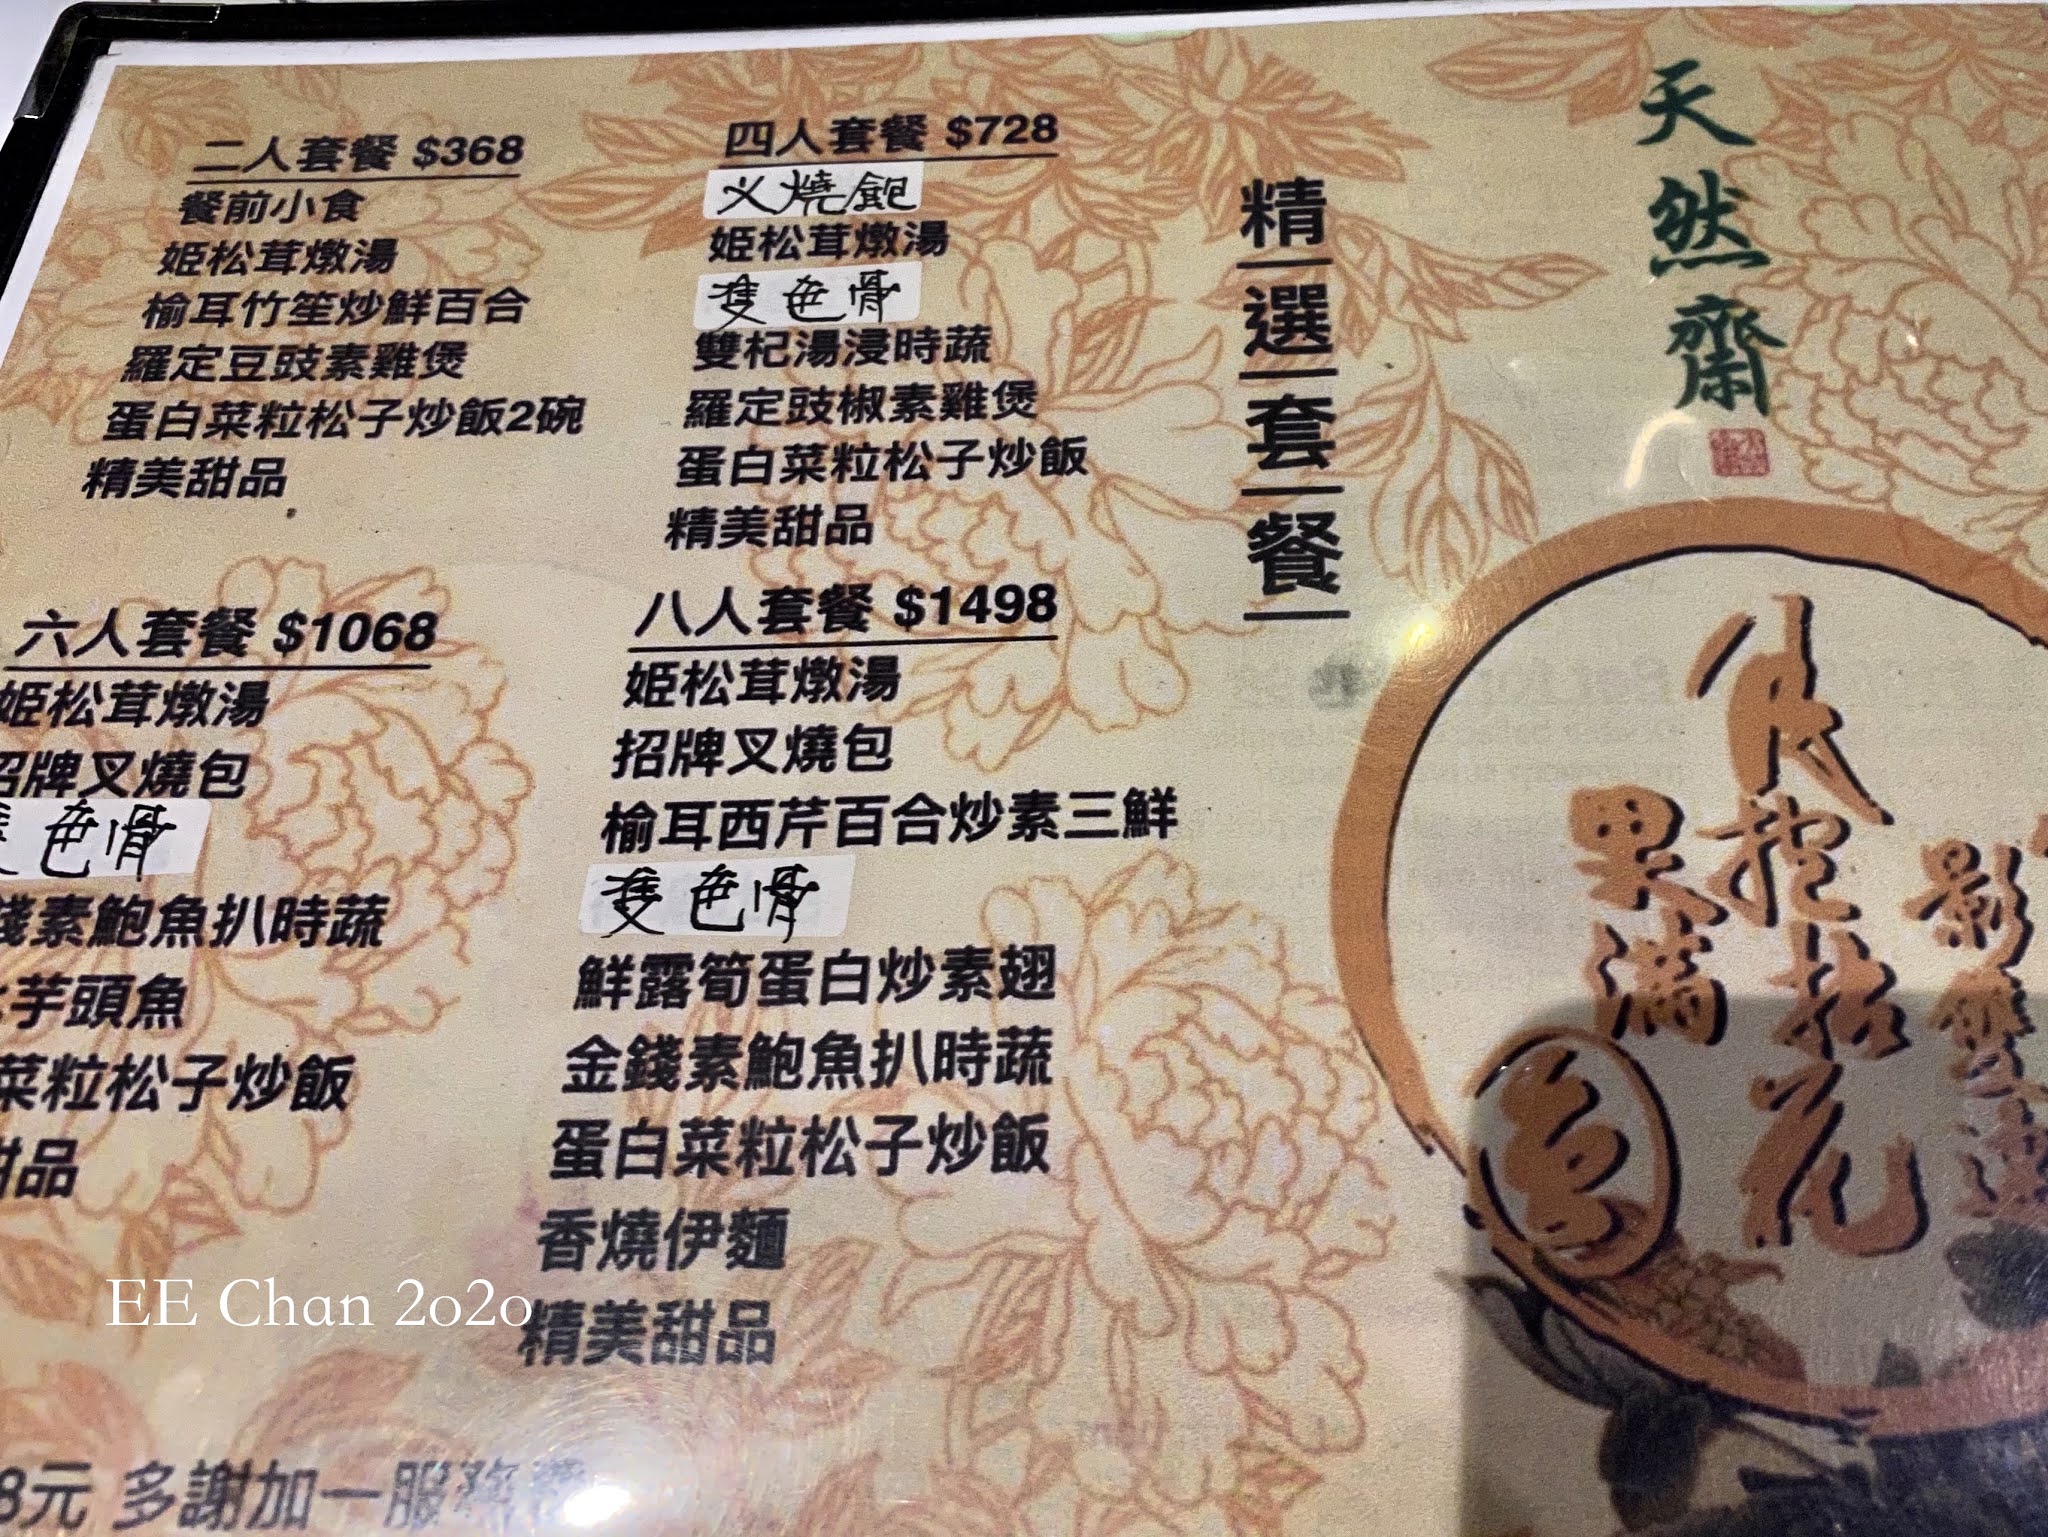 天然齋
精選套餐
二人套餐 $368
餐前小食
姫松茸燉湯
榆耳竹笙炒鮮百合
羅定豆豉素雞煲
蛋白菜粒松子炒飯2碗
精美甜品
四人套餐 $728
叉燒飽
姫松茸燉湯
雙色骨
雙杞湯浸時蔬
羅定豉椒素雞煲
蛋白菜粒松子炒飯
精美甜品
六人套餐 $1068
姫松茸燉湯
招牌叉燒包
色骨
錢素鮑魚扒時蔬
芋頭魚
菜粒松子炒飯
甜品
八人套餐 $1498
姫松茸燉湯
招牌叉燒包
榆耳西芹百合炒素三鮮
雙色骨
鮮露筍蛋白炒素翅
金錢素鮑魚扒時蔬
蛋白菜粒松子炒飯
香燒伊麵
精美甜品
8元 多謝加一服務
果滿
EE Chan 2020